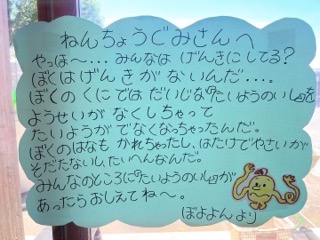 ねんちょうぐみさんへ
やっほ〜…みんなは げんきにしてる?
ぼくはげんきが ないんだ…。
ぼくの くにでは だいじな『たいようのいし』を
ようせいが なくしちゃって
たいようが でなくなっちゃったんだ。
ぼくのはなも かれちゃったし、はたけでやさいが
そだたないし、たいへんなんだ。
みんなのところに『たいようのいし』が
あったらおしえてね〜。
ぽよよんより